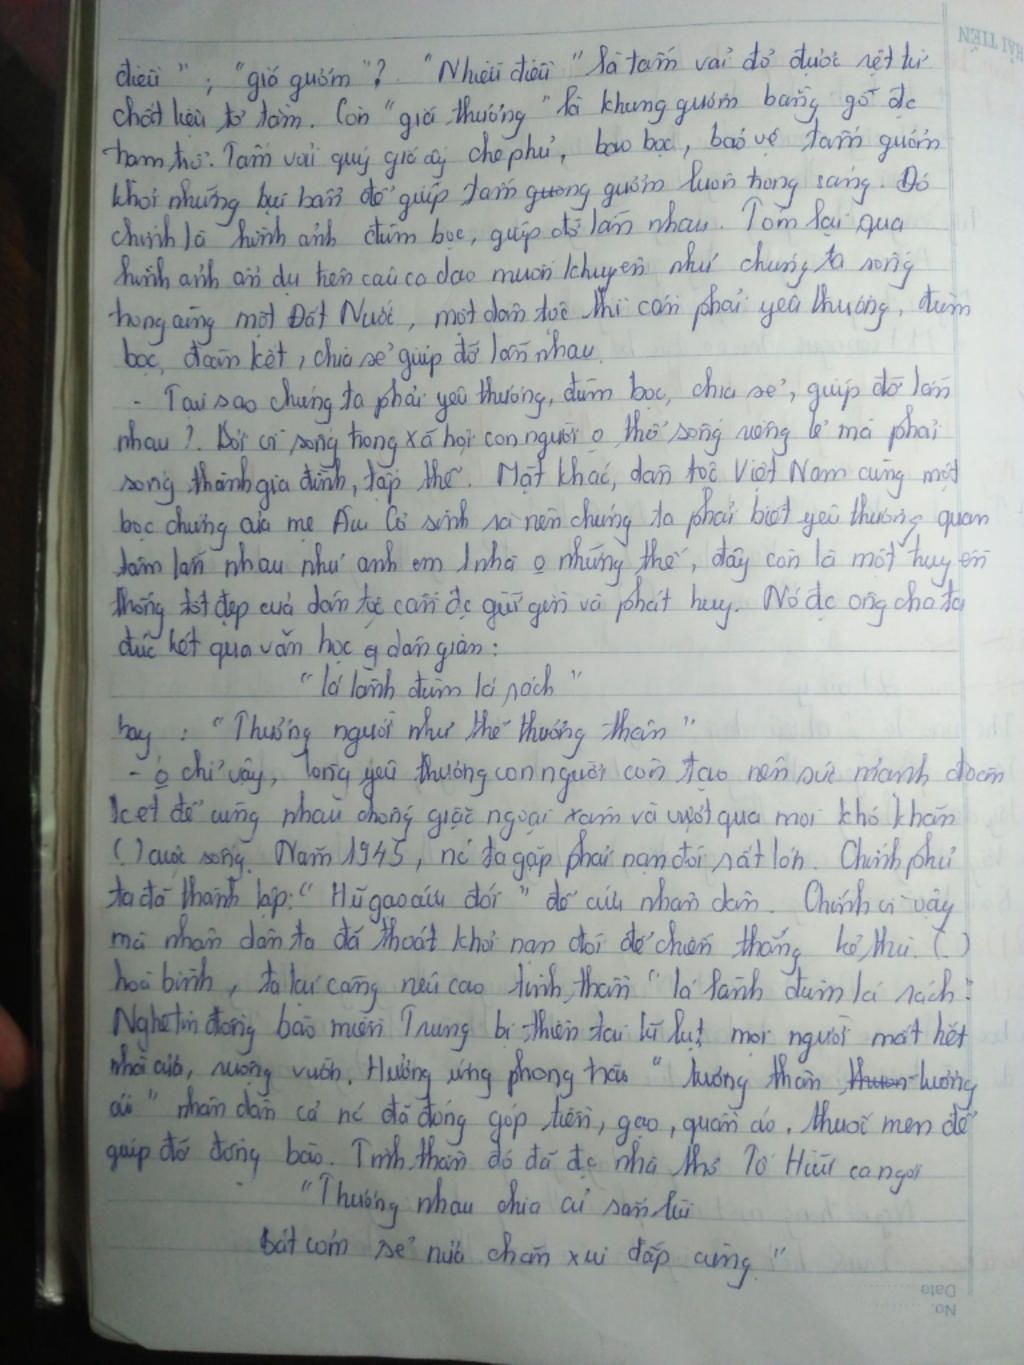 điều" ; "giá gương"? "Nhiễu điều" là tấm vải đỏ được dệt từ
chất liệu tơ tằm. Còn "giá gương" là khung gương bằng gỗ đc
trạm trổ. Tấm vải quý giá ấy che phủ, bao bọc, bảo vệ tấm gương
khỏi những bụi bẩn để giúp tấm gương gương luôn trong sáng. Đó
chính là hình ảnh đùm bọc, giúp đỡ lẫn nhau. Tóm lại qua
hình ảnh ẩn dụ trên câu ca dao muốn khuyên như chúng ta sống
trong cùng một Đất Nước, một dân tộc thì cần phải yêu thương, đùm
bọc, đoàn kết, chia sẻ giúp đỡ lẫn nhau.
- Tại sao chúng ta phải yêu thương, đùm bọc, chia sẻ, giúp đỡ lẫn
nhau?. Bởi vì sống trong xã hội con người o thể sống riêng lẻ mà phải
sống thành gia đình, tập thể. Mặt khác, dân tộc Việt Nam cùng một
bọc chứng của mẹ Âu Cơ sinh ra nên chúng ta phải biết yêu thương quan
tâm lẫn nhau như anh em 1 nhà o những thế, đây còn là một truyền
thống tốt đẹp của dân tộc cần đc giữ gìn và phát huy. Nó đc ông cha ta
đúc kết qua văn học dân gian:
"lá lành đùm lá rách"
hay : "Thương người như thể thương thân"
- o chỉ vậy, lòng yêu thương con người còn tạo nên sức mạnh đoàn
kết để cùng nhau chống giặc ngoại xâm và vượt qua mọi khó khăn
( ) cuộc sống. Năm 1945, nc ta gặp phải nạn đói rất lớn. Chính phủ
ta đã thành lập: "Hũ gạo cứu đói" để cứu nhân dân. Chính vì vậy
mà nhân dân ta đã thoát khỏi nạn đói để chiến thắng kẻ thù. ( )
hoà bình, ta lại càng nêu cao tinh thần "lá lành đùm lá rách".
Nghe tin đồng bào miền Trung bị thiên tai lũ lụt mọi người mất hết
nhà cửa, ruộng vườn. Hưởng ứng phong trào "tương thân thươn tương
ái" nhân dân cả nc đã đóng góp tiền, gạo, quần áo, thuốc men để
giúp đỡ đồng bào. Tinh thần đó đã đc nhà thơ Tố Hữu ca ngợi
"Thương nhau chia củ sắn lùi
Bát cơm sẻ nửa chăn xui đắp cùng"
No:
Date
HẢI TIẾN